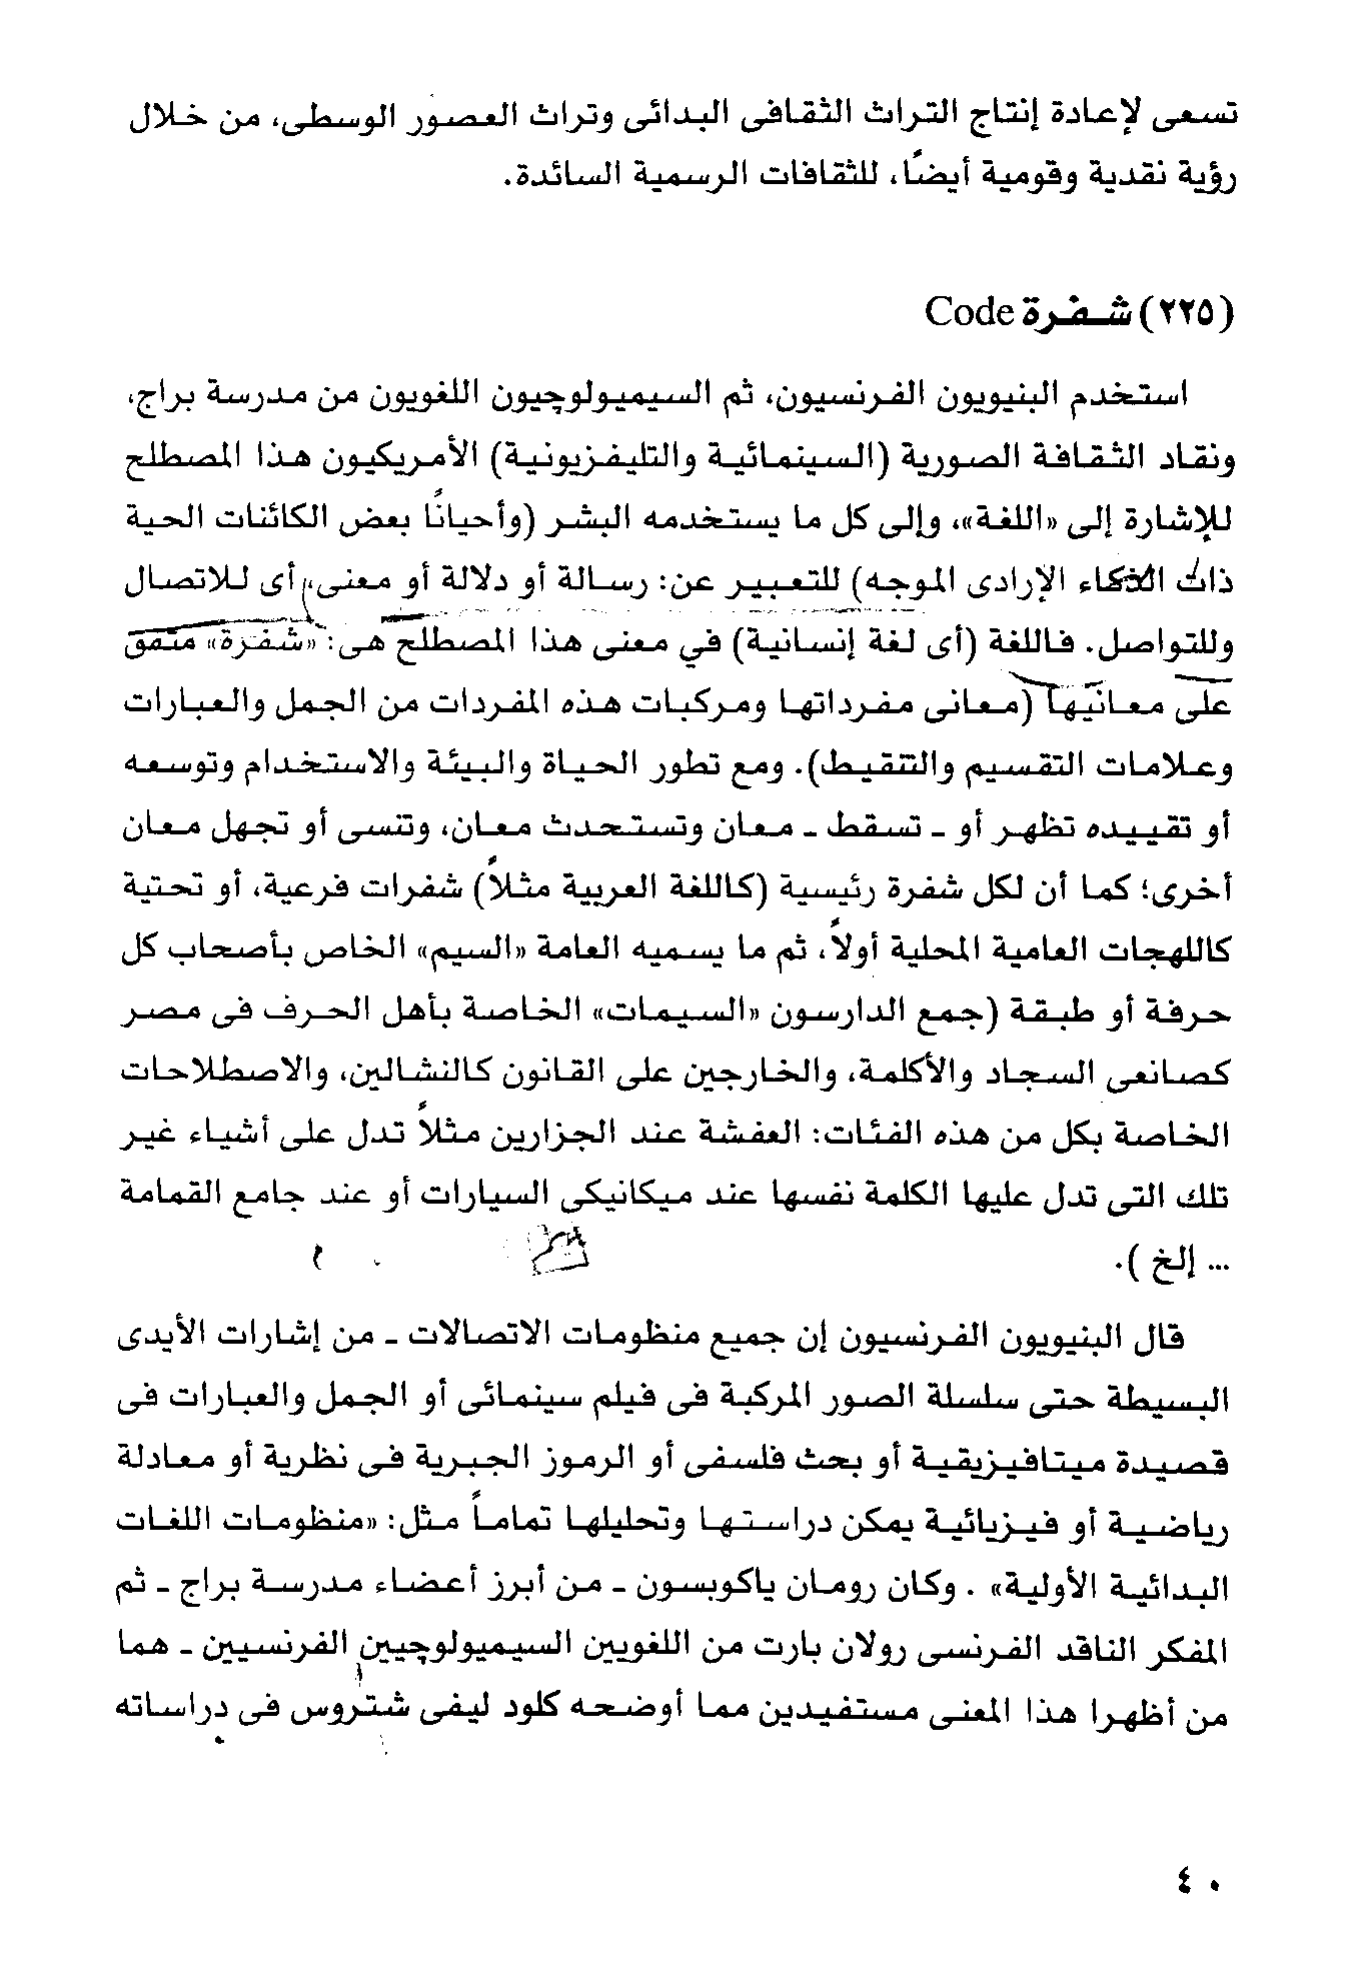 تسعى لإعادة إنتاج التراث الثقافى البدائى وتراث العصور الوسطى، من خلال
رؤية نقدية وقومية أيضًا، للثقافات الرسمية السائدة.
(٢٢٥) شفرة Code
استخدم البنيويون الفرنسيون، ثم السيميولوچيون اللغويون من مدرسة براج،
ونقاد الثقافة الصورية (السينمائية والتليفزيونية) الأمريكيون هذا المصطلح
للإشارة إلى «اللغة»، وإلى كل ما يستخدمه البشر (وأحيانًا بعض الكائنات الحية
ذات الذكاء الإرادى الموجه) للتعبير عن: رسالة أو دلالة أو معنى، أى للاتصال
وللتواصل. فاللغة (أى لغة إنسانية) في معنى هذا المصطلح هى: «شفرة» متفق
على معانيها (معانى مفرداتها ومركبات هذه المفردات من الجمل والعبارات
وعلامات التقسيم والتنقيط). ومع تطور الحياة والبيئة والاستخدام وتوسعه
أو تقييده تظهر أو - تسقط - معان وتستحدث معان، وتنسى أو تجهل معان
أخرى؛ كما أن لكل شفرة رئيسية (كاللغة العربية مثلاً) شفرات فرعية، أو تحتية
كاللهجات العامية المحلية أولاً، ثم ما يسميه العامة «السيم» الخاص بأصحاب كل
حرفة أو طبقة (جمع الدارسون «السيمات» الخاصة بأهل الحرف فى مصر
كصانعى السجاد والأكلمة، والخارجين على القانون كالنشالين، والاصطلاحات
الخاصة بكل من هذه الفئات: العفشة عند الجزارين مثلاً تدل على أشياء غير
تلك التى تدل عليها الكلمة نفسها عند ميكانيكى السيارات أو عند جامع القمامة
... إلخ ).
قال البنيويون الفرنسيون إن جميع منظومات الاتصالات - من إشارات الأيدى
البسيطة حتى سلسلة الصور المركبة فى فيلم سينمائى أو الجمل والعبارات فى
قصيدة ميتافيزيقية أو بحث فلسفى أو الرموز الجبرية فى نظرية أو معادلة
رياضية أو فيزيائية يمكن دراستها وتحليلها تماماً مثل: «منظومات اللغات
البدائية الأولية» . وكان رومان ياكوبسون - من أبرز أعضاء مدرسة براج - ثم
المفكر الناقد الفرنسى رولان بارت من اللغويين السيميولوچيين الفرنسيين - هما
من أظهرا هذا المعنى مستفيدين مما أوضحه كلود ليفى شتروس فى دراساته
٤٠